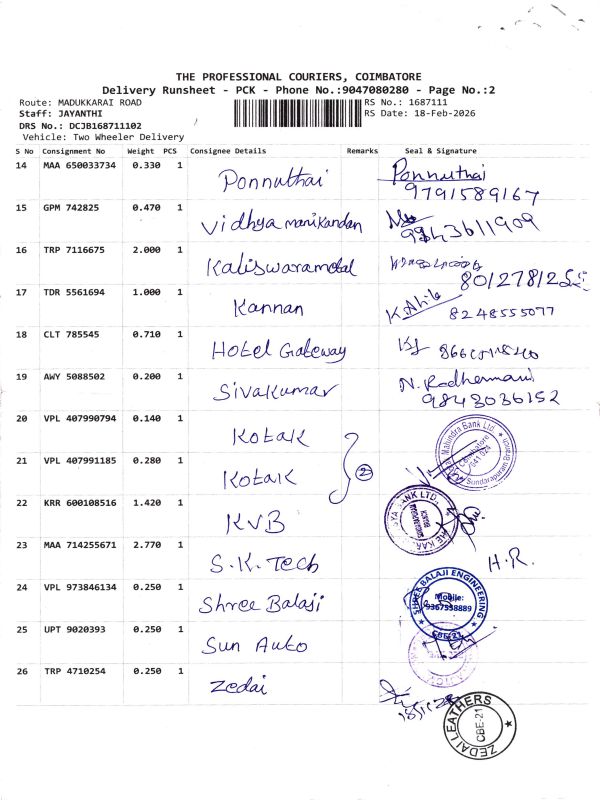 THE PROFESSIONAL COURIERS, COIMBATORE
Delivery Runsheet - PCK - Phone No.:9047080280 - Page No.:2
Route: MADUKKARAI ROAD RS No.: 1687111
Staff: JAYANTHI RS Date: 18-Feb-2026
DRS No.: DCJB168711102
Vehicle: Two Wheeler Delivery
S No Consignment No Weight PCS Consignee Details Remarks Seal & Signature
14 MAA 650033734 0.330 1 Ponnuthai Ponnuthai
9791589167
15 GPM 742825 0.470 1 Vidhya manikandan
9943611909
16 TRP 7116675 2.000 1
17 TDR 5561694 1.000 1 Kannan
8248555077
18 CLT 785545 0.710 1 Hotel Gateway
19 AWY 5088502 0.200 1 Sivakumar N. Radhamani
9843036152
20 VPL 407990794 0.140 1 Kotak
Mahindra Bank Ltd. Coimbatore 641 024 Sundarapuram Branch
21 VPL 407991185 0.280 1 Kotak 2
22 KRR 600108516 1.420 1 KVB
BANK LTD.
23 MAA 714255671 2.770 1 S.K. Tech H.R.
24 VPL 973846134 0.250 1 Shree Balaji
SHREE BALAJI ENGINEERING Mobile: 9367558889 CBE-21
25 UPT 9020393 0.250 1 Sun Auto
26 TRP 4710254 0.250 1 Zedai
ZEDAI LEATHERS CBE-21